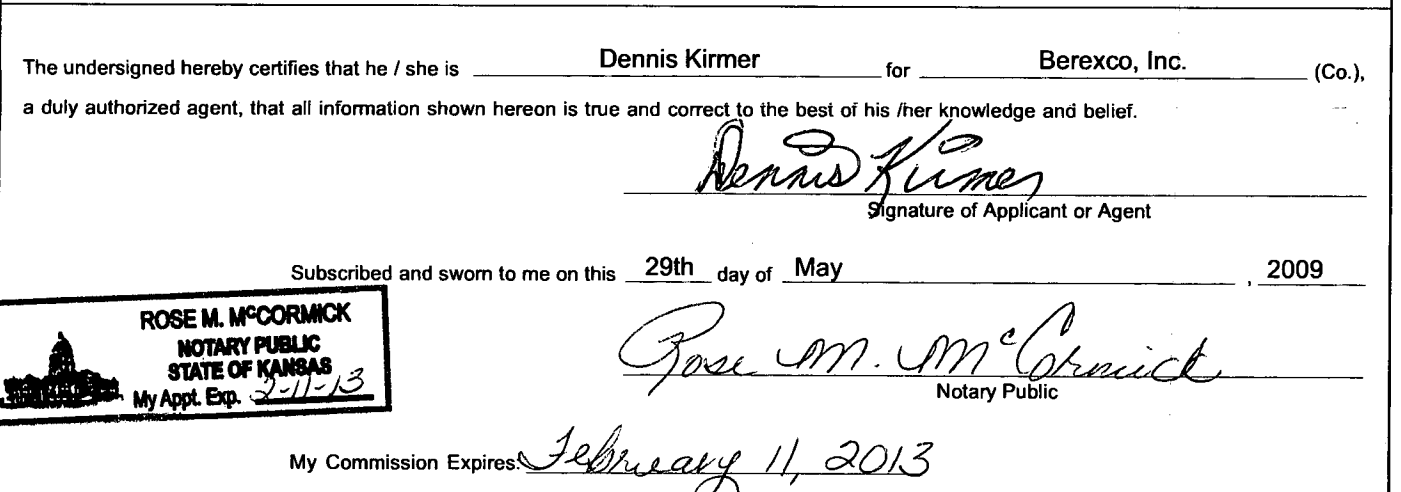 The undersigned hereby certifies that he / she is Dennis Kirmer for Berexco, Inc. (Co.),
a duly authorized agent, that all information shown hereon is true and correct to the best of his /her knowledge and belief.
Dennis Kirmer
Signature of Applicant or Agent
Subscribed and sworn to me on this 29th day of May , 2009
ROSE M. McCORMICK
NOTARY PUBLIC
STATE OF KANSAS
My Appt. Exp. 2-11-13
Rose M. McCormick
Notary Public
My Commission Expires: February 11, 2013